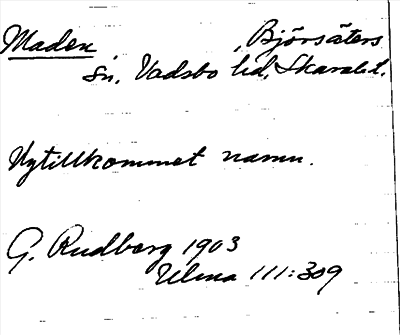 Maden , Björsäters
sn, Vadsbo hd, Skarabl.
Nytillkommet namn.
G. Rudberg 1903
Ulma 111:309